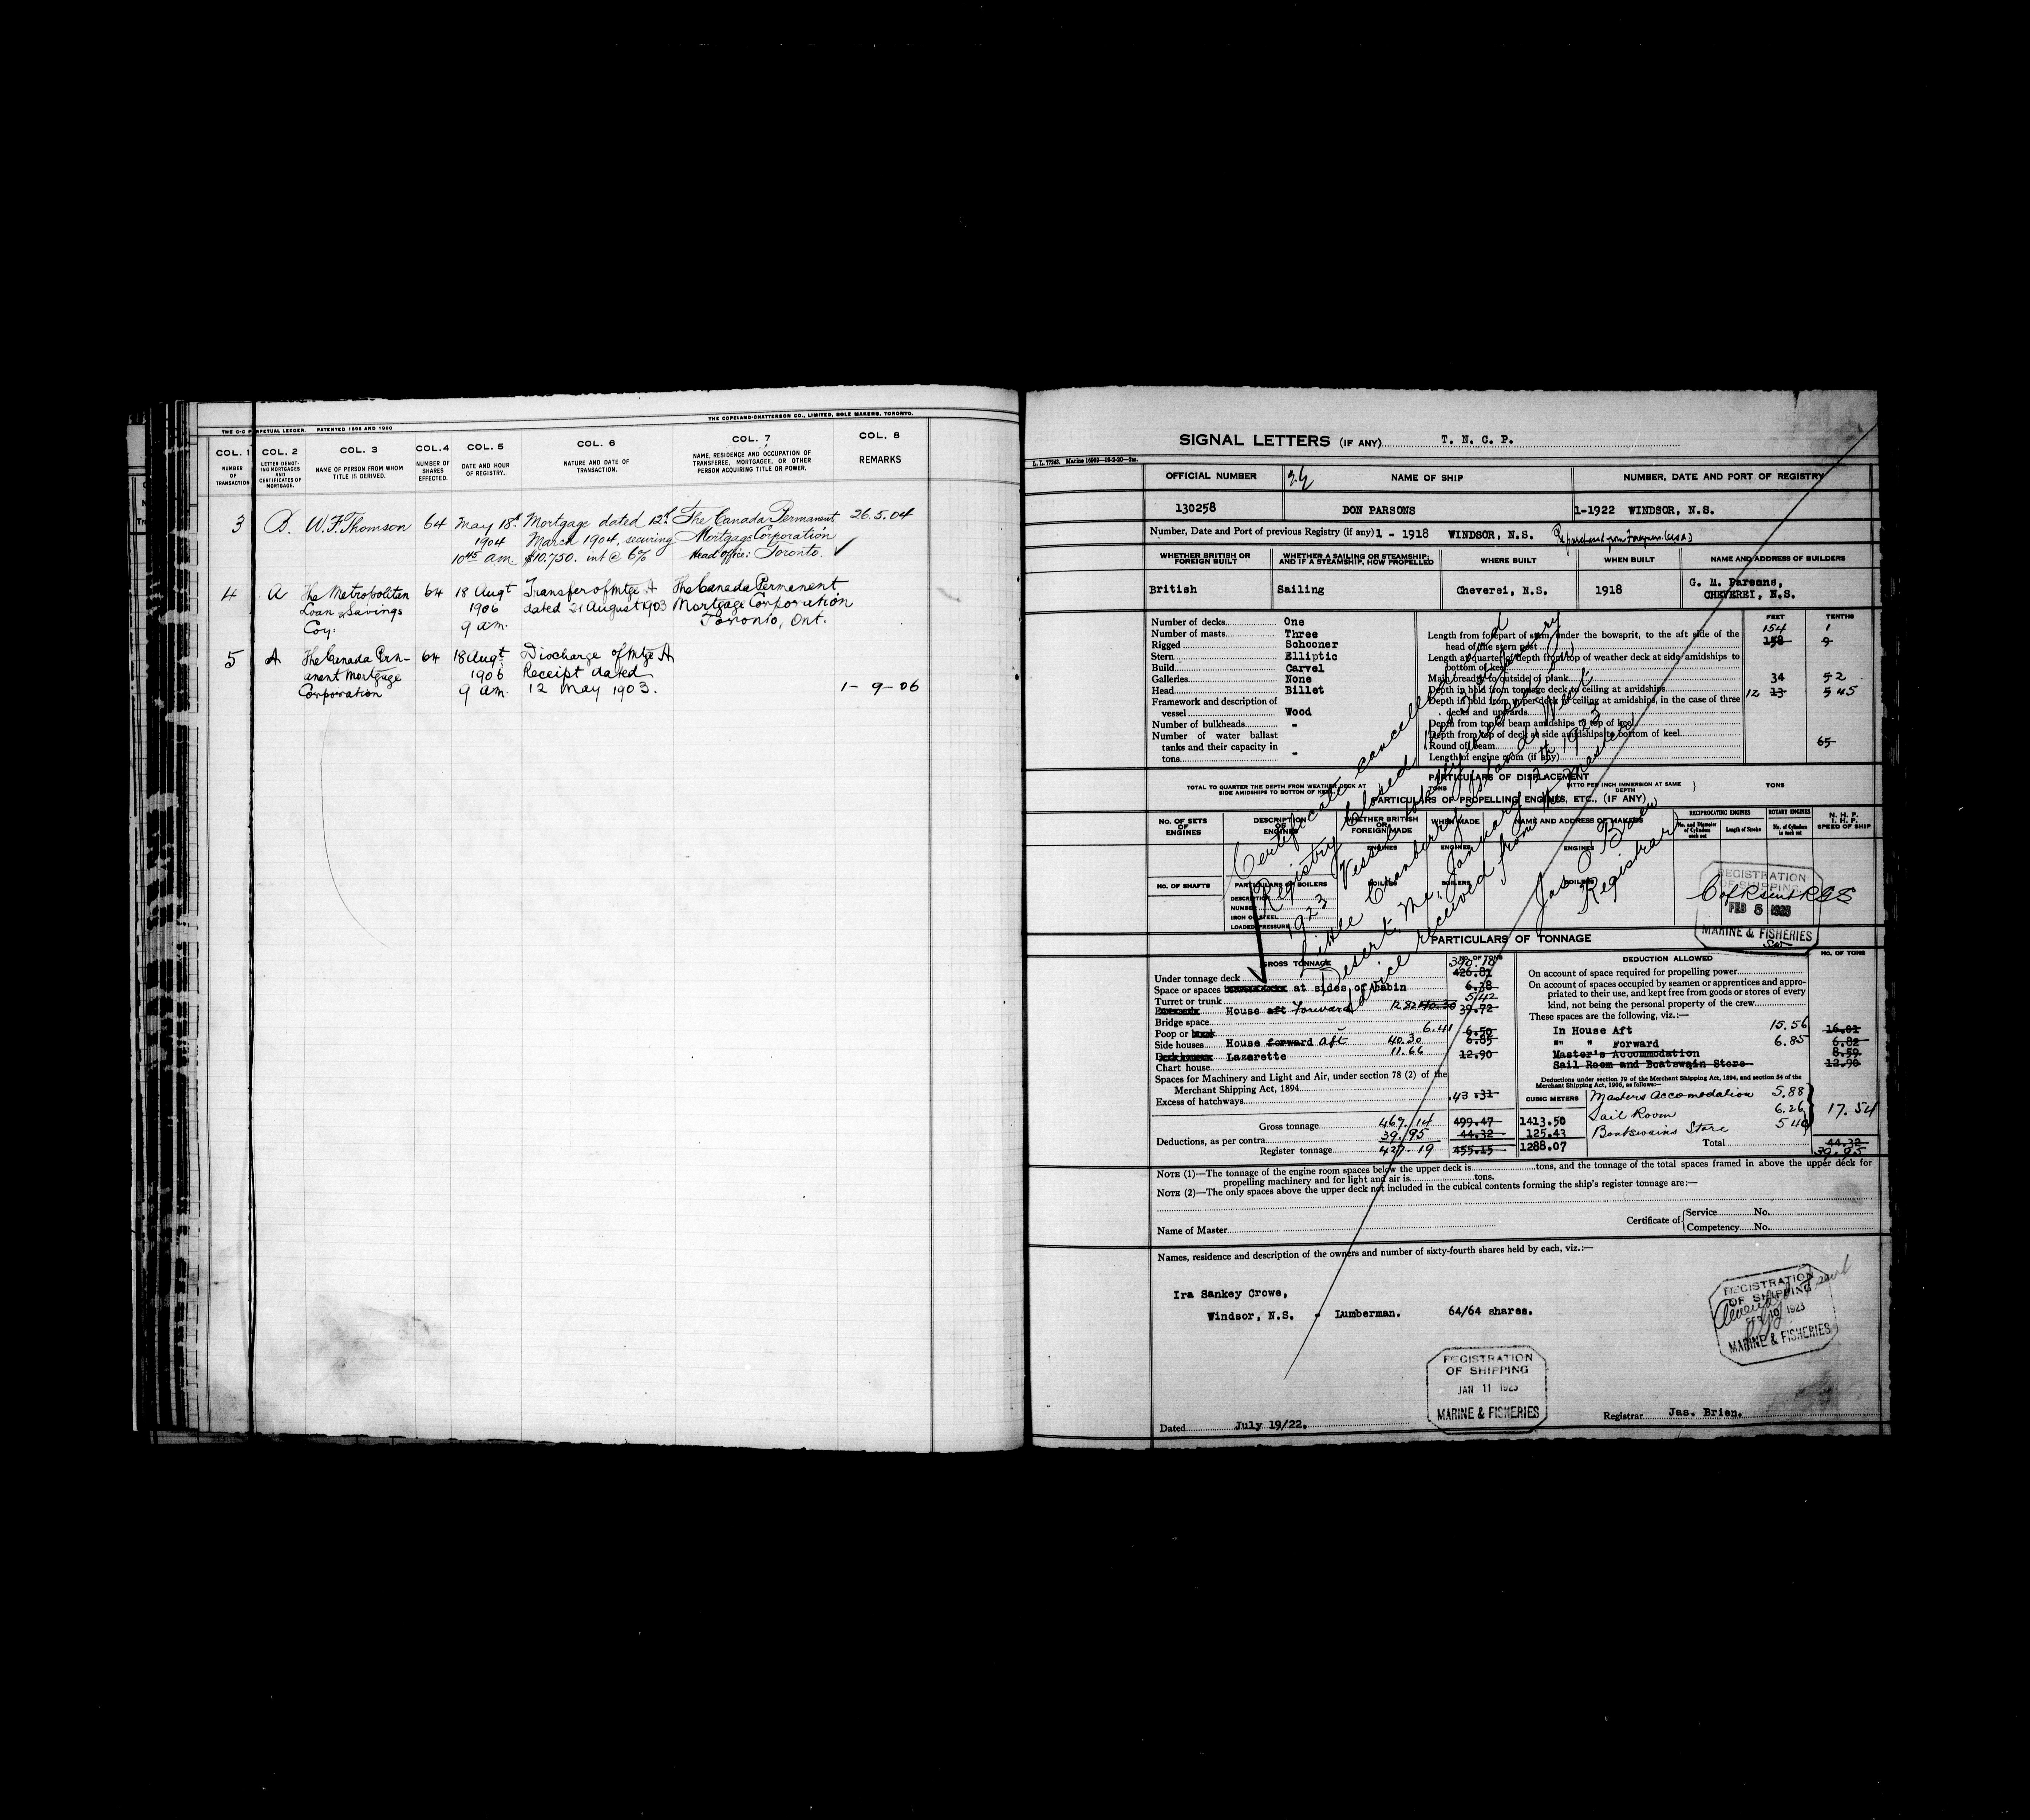 THE C-C PERPETUAL LEDGER. PATENTED 1896 AND 1900
THE COPELAND-CHATTERSON CO., LIMITED, SOLE MAKERS, TORONTO.
COL. 1 COL. 2 COL. 3 COL. 4 COL. 5 COL. 6 COL. 7 COL. 8
NUMBER OF TRANSACTION
LETTER DENOTING MORTGAGES AND CERTIFICATES OF MORTGAGE.
NAME OF PERSON FROM WHOM TITLE IS DERIVED.
NUMBER OF SHARES EFFECTED.
DATE AND HOUR OF REGISTRY.
NATURE AND DATE OF TRANSACTION.
NAME, RESIDENCE AND OCCUPATION OF TRANSFEREE, MORTGAGEE, OR OTHER PERSON ACQUIRING TITLE OR POWER.
REMARKS
3 D. W. F. Thomson 64 May 18th Mortgage dated 12th The Canada Permanent 26.5.04
1904 March 1904, securing Mortgage Corporation
10 45 am $10.750. int @ 6% Head Office: Toronto.
4 A The Metropolitan 64 18 Augt Transfer of Mtge A The Canada Permanent
Loan & Savings 1906 dated 21 August 1903 Mortgage Corporation
Coy: 9 am. Toronto, Ont.
5 A The Canada Perm- 64 18 Augt Discharge of Mtge A
anent Mortgage 1906 Receipt dated
Corporation 9 am. 12 May 1903. 1-9-06
SIGNAL LETTERS (IF ANY) T. N. C. P.
OFFICIAL NUMBER NAME OF SHIP NUMBER, DATE AND PORT OF REGISTRY
130258 DON PARSONS 1-1922 WINDSOR, N.S.
Number, Date and Port of previous Registry (if any) 1 - 1918 WINDSOR, N.S. Repurchased from Foreigners (USA)
WHETHER BRITISH OR FOREIGN BUILT
WHETHER A SAILING OR STEAMSHIP; AND IF A STEAMSHIP, HOW PROPELLED
WHERE BUILT
WHEN BUILT
NAME AND ADDRESS OF BUILDERS
British Sailing Cheverei, N.S. 1918 G. M. Parsons,
CHEVEREI, N.S.
FEET TENTHS
Number of decks One
Number of masts Three
Rigged Schooner
Stern Elliptic
Build Carvel
Galleries None
Head Billet
Framework and description of
vessel Wood
Number of bulkheads -
Number of water ballast
tanks and their capacity in
tons -
Length from forepart of stem, under the bowsprit, to the aft side of the
head of the stern post 154 1
158 9
Length at quarter of depth from top of weather deck at side amidships to
bottom of keel
Main breadth to outside of plank 34 52
Depth in hold from tonnage deck to ceiling at amidships 12 13 5 45
Depth in hold from upper deck to ceiling at amidships, in the case of three
decks and upwards
Depth from top of beam amidships to top of keel
Depth from top of deck at side amidships to bottom of keel
Round of beam 65
Length of engine room (if any)
PARTICULARS OF DISPLACEMENT
TOTAL TO QUARTER THE DEPTH FROM WEATHER DECK AT SIDE AMIDSHIPS TO BOTTOM OF KEEL TONS
DITTO PER INCH IMMERSION AT SAME DEPTH TONS
PARTICULARS OF PROPELLING ENGINES, ETC., (IF ANY)
No. OF SETS OF ENGINES
DESCRIPTION OF ENGINES
WHETHER BRITISH OR FOREIGN MADE
WHEN MADE
NAME AND ADDRESS OF MAKERS
RECIPROCATING ENGINES
No. and Diameter of Cylinders each set
Length of Stroke
ROTARY ENGINES
No. of Cylinders in each set
N. H. P.
I. H. P.
SPEED OF SHIP
ENGINES ENGINES ENGINES
NO. OF SHAFTS
PARTICULARS OF BOILERS BOILERS BOILERS BOILERS
DESCRIPTION
NUMBER
IRON OR STEEL
LOADED PRESSURE
Certificate cancelled and
Registry closed 11th February
1923 Vessel totally wrecked on
Little Cranberry Island, West
Desert, Me, January 12th 1923
Advice received from Master
Jas O'Brien
Registrar
REGISTRATION
OF SHIPPING
C of R sent RGS
FEB 5 1923
MARINE & FISHERIES
PARTICULARS OF TONNAGE
GROSS TONNAGE No. OF TONS
DEDUCTION ALLOWED No. OF TONS
Under tonnage deck 390.18 426.81
Space or spaces at sides of cabin 6.38
Turret or trunk 5/42
House aft Forward 12.82 40.30 39.72
Bridge space
Poop or 6.41 6.50
Side houses House forward Aft 40.30 6.85
Lazarette 11.66 12.90
Chart house
Spaces for Machinery and Light and Air, under section 78 (2) of the
Merchant Shipping Act, 1894
Excess of hatchways .43 .31
Gross tonnage 467.14 499.47 1413.50
Deductions, as per contra 39.95 44.32 125.43
Register tonnage 427.19 455.15 1288.07
On account of space required for propelling power
On account of spaces occupied by seamen or apprentices and appro-
priated to their use, and kept free from goods or stores of every
kind, not being the personal property of the crew
These spaces are the following, viz.:—
In House Aft 15.56 16.01
" " Forward 6.85 6.82
Master's Accommodation 8.59
Sail Room and Boatswain Store 12.90
Deductions under section 79 of the Merchant Shipping Act, 1894, and section 54 of the
Merchant Shipping Act, 1906, as follows:—
CUBIC METERS
Masters Accomodation 5.88
Sail Room 6.26 17.54
Boatswains Store 5 40
Total 44.32
39.95
NOTE (1)—The tonnage of the engine room spaces below the upper deck is tons, and the tonnage of the total spaces framed in above the upper deck for
propelling machinery and for light and air is tons.
NOTE (2)—The only spaces above the upper deck not included in the cubical contents forming the ship's register tonnage are:—
Name of Master
Certificate of Service No.
Competency No.
Names, residence and description of the owners and number of sixty-fourth shares held by each, viz.:—
Ira Sankey Crowe,
Windsor, N.S. - Lumberman. 64/64 shares.
REGISTRATION
OF SHIPPING
FEB 19 1923
MARINE & FISHERIES
REGISTRATION
OF SHIPPING
JAN 11 1923
MARINE & FISHERIES
Dated July 19/22.
Registrar Jas. Brien.